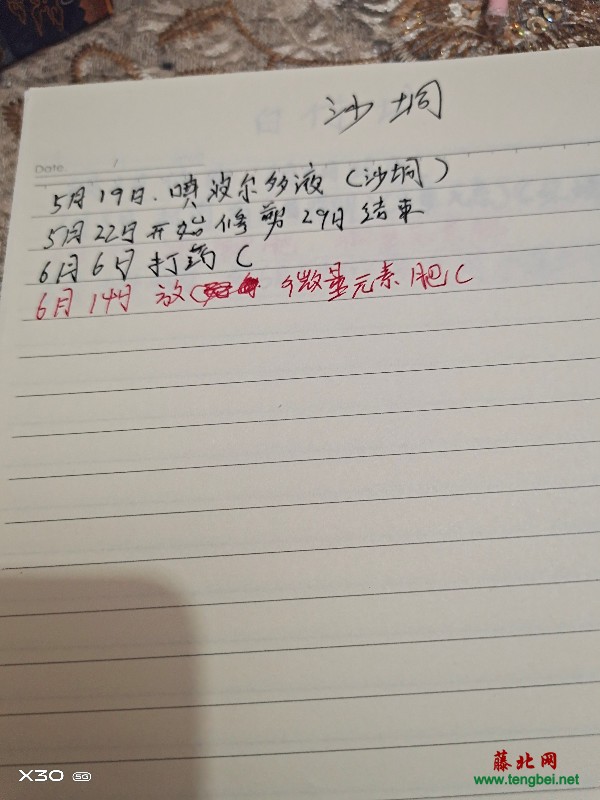 沙垌
Date
5月19日.喷波尔多液(沙垌)
5月22日开始修剪29日结束
6月6日打药(
6月14日 放( 微量元素肥(
X30 5G
藤北网
www.tengbei.net